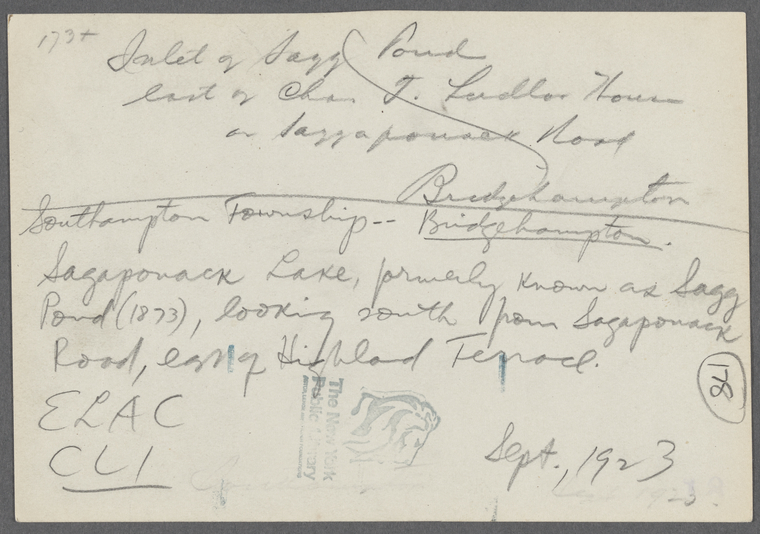 173+
Inlet of Sagg Pond
east of Chas T. Ludlow House
on Saggaponack Road
Bridgehampton
Southampton Township -- Bridgehampton.
Sagaponack Lake, formerly known as Sagg
Pond (1873), looking south from Sagaponack
Road, east of Highland Terrace.
178
ELAC
CLI
The New York
Public Library
Sept., 1923
1923.